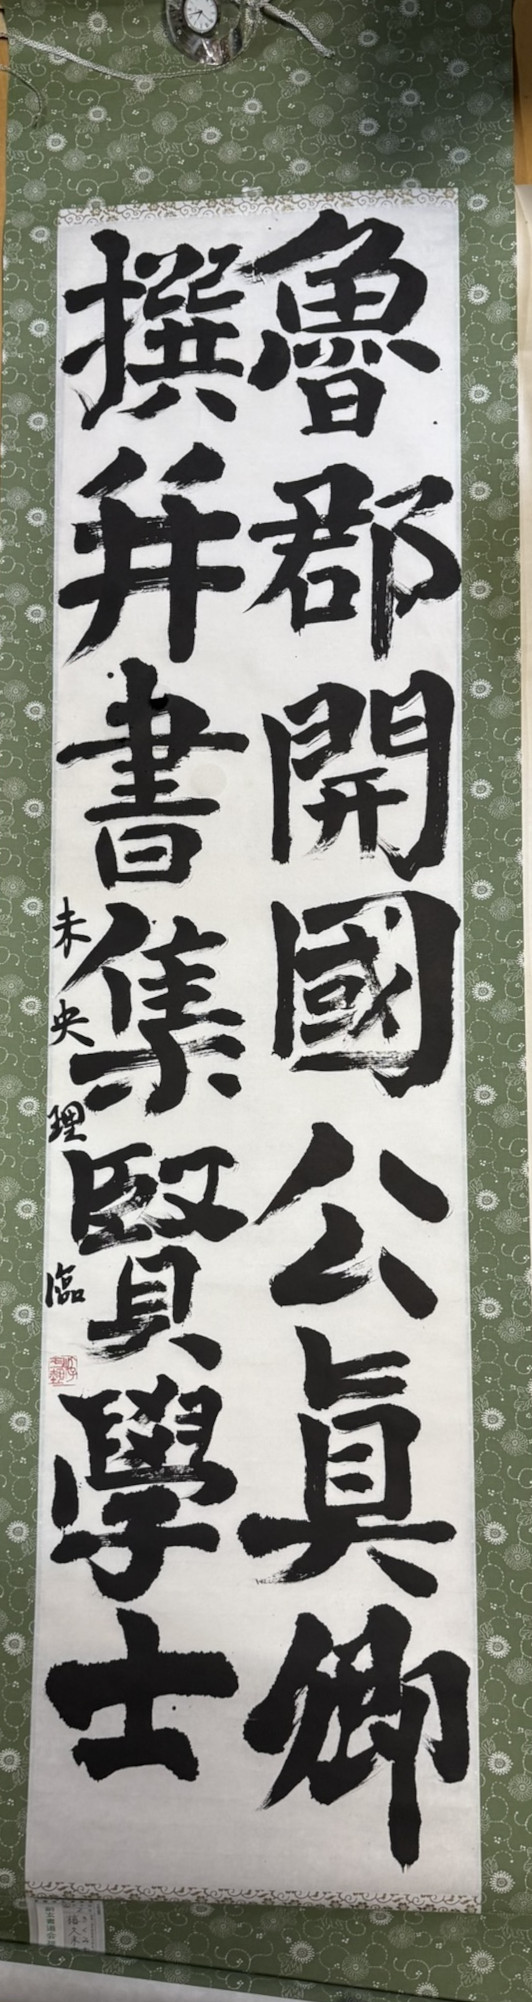 魯郡開國公真卿
撰并書集賢學士
未央理臨